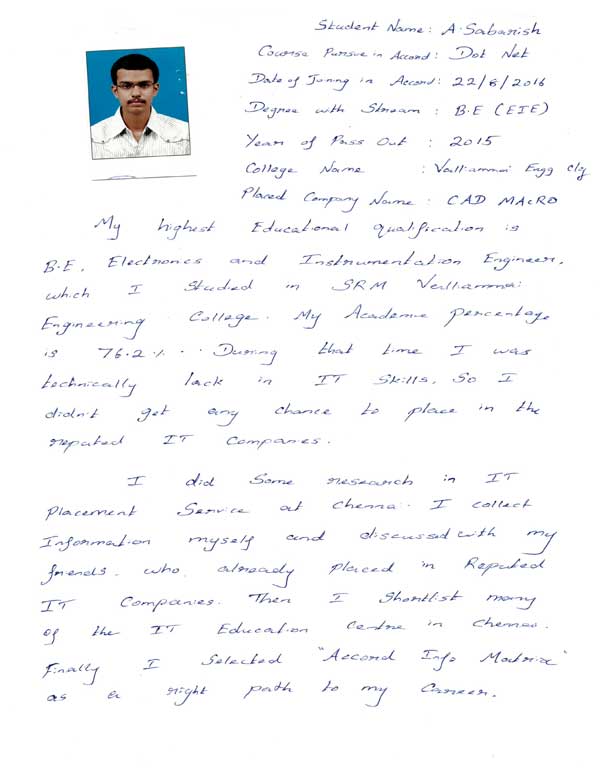 Student Name: A. Sabarish
Course Pursue in Accord: Dot Net
Date of Joining in Accord: 22/6/2016
Degree with Stream : B.E (EIE)
Year of Pass Out : 2015
College Name : Valliammai Engg Clg
Placed Company Name : CAD MACRO
My highest Educational qualification is
B.E, Electronics and Instrumentation Engineer,
which I Studied in SRM Valliammai
Engineering College. My Academic percentage
is 76.2%. During that time I was
technically lack in IT Skills, So I
didn't get any chance to place in the
reputed IT Companies.
I did Some research in IT
Placement Service at Chennai. I collect
Information myself and discussed with my
friends who already placed in Reputed
IT Companies. Then I Shortlist many
of the IT Education Centre in Chennai.
Finally I Selected "Accord Info Matrix"
as a right path to my Career.